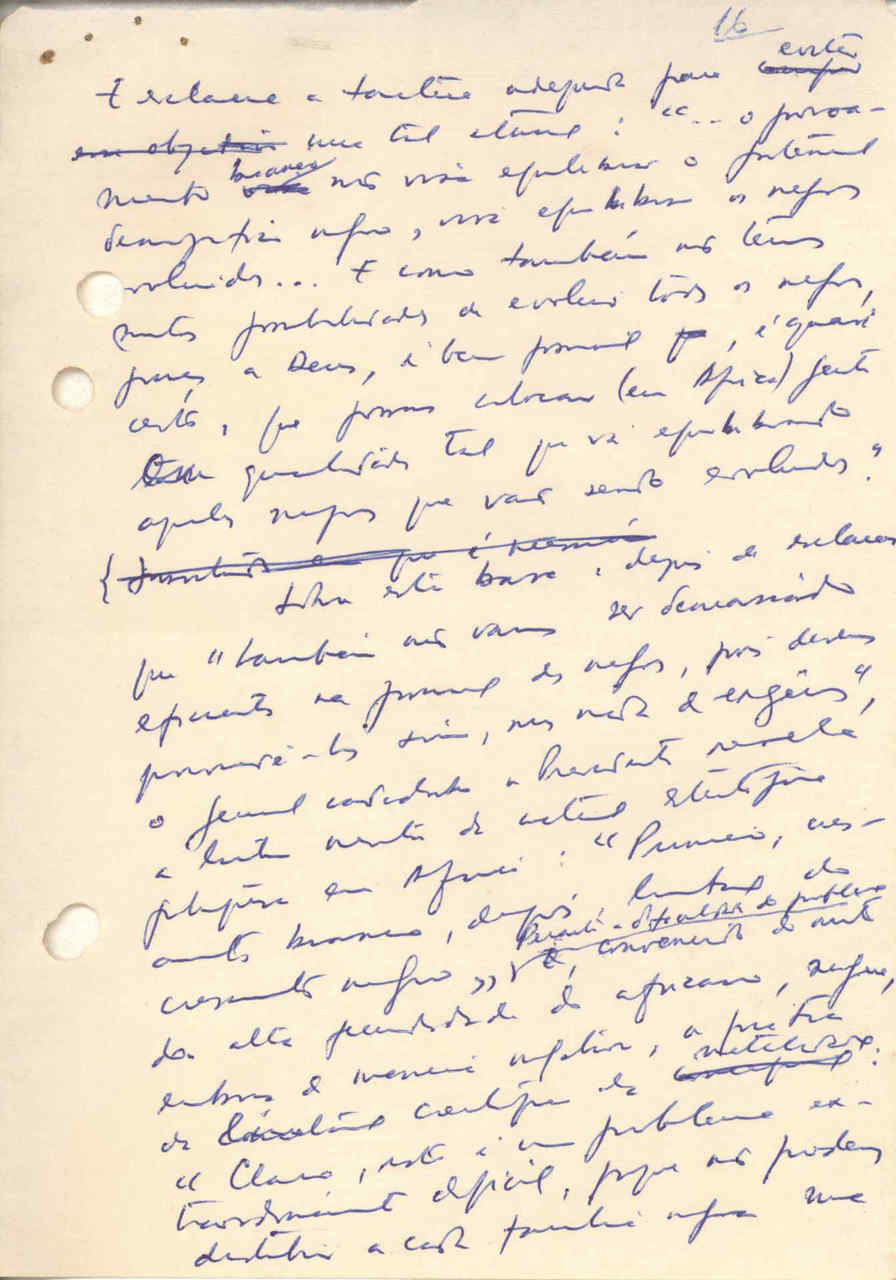 16
E esclarece a táctica adequada para evitar
uma tal atitude: "... o povoa-
mento branco não visa equilibrar o potencial
demográfico negro, visa equilibrar os negros
evoluídos... E como também não temos
muitas possibilidades de evoluir todos os negros,
graças a Deus, é bem possível, é quasi
certo, que possamos colocar (em África) gente
em qualidade tal que vá equilibrando
aqueles negros que vão sendo evoluídos."
Sobre esta base e depois de esclarecer
que "também não vamos ser demasiado
eficientes na promoção dos negros, pois devemos
promovê-los sim, mas nada de exageros",
o general candidato a Presidente revela
a linha mestra da actual estratégia
portuguesa em África: "Primeiro, cres-
cimento branco, depois, limitação do
crescimento negro". Perante a dificuldade do problema
e, convencido
da alta fecundidade do africano, sugere,
embora de maneira negativa, a prática
da científica da natalidade:
"Claro, isto é um problema ex-
traordinariamente difícil, porque não podemos
distribuir a cada família negra uma